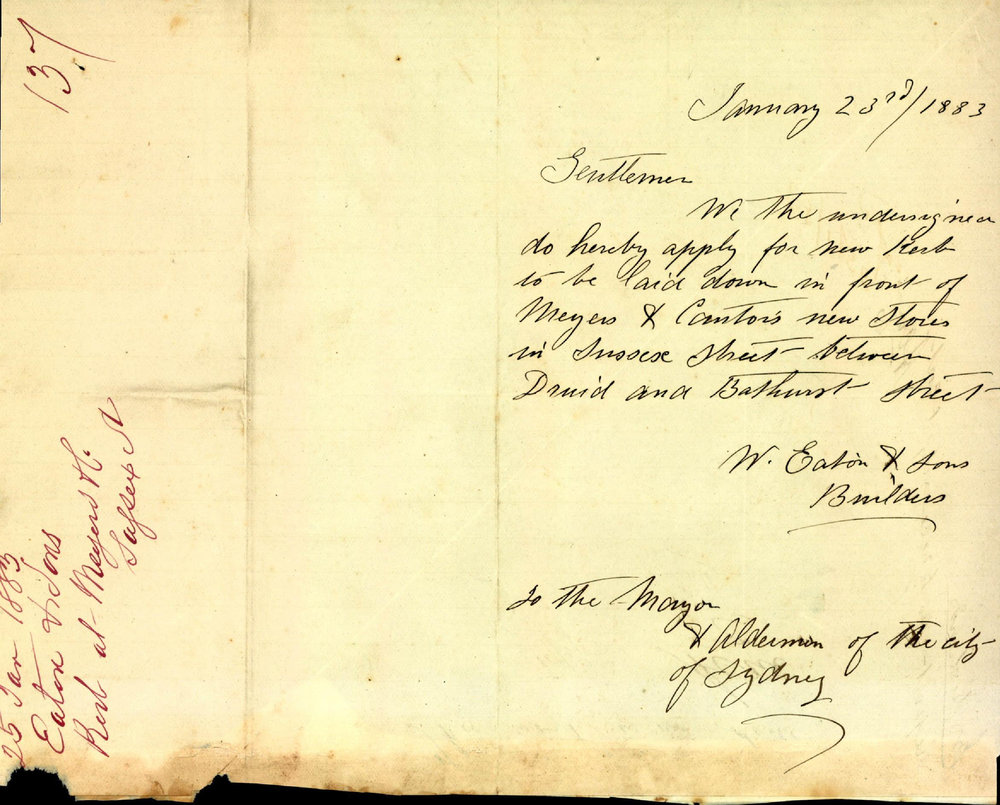 137
January 23rd/1883
Gentlemen
We the undersigned
do hereby apply for new Kerb
to be laid down in front of
Meyers & Cantor's new Stores
in Sussex Street between
Druid and Bathurst Street
W. Eaton & Sons
Builders
To the Mayor
& Aldermen of the city
of Sydney
25 Jan 1883
Eaton & Sons
Kerb at Meyers & C.
Sussex St